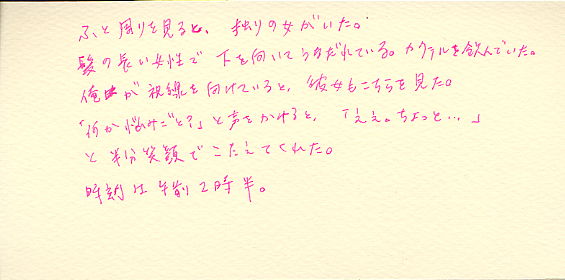 ふと周りを見ると、独りの女がいた。
髪の長い女性で下を向いてうなだれている。カクテルを飲んでいた。
俺が視線を向けていると、彼女もこちらを見た。
「何か悩みごと?」と声をかけると、「ええ。ちょっと…」
と半分笑顔でこたえてくれた。
時刻は午前2時半。